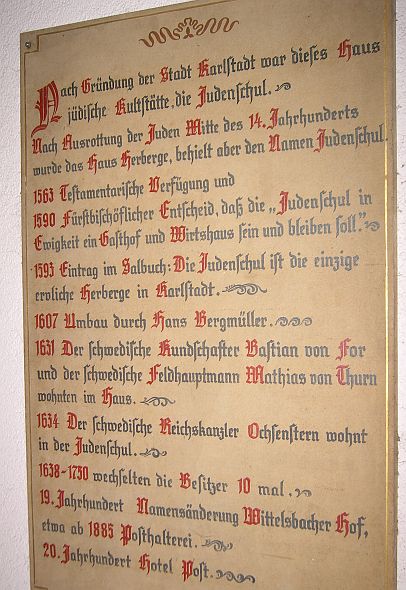 Nach Gründung der Stadt Karlstadt war dieses Haus
jüdische Kultstätte, die Judenschul.
Nach Ausrottung der Juden Mitte des 14. Jahrhunderts
wurde das Haus Herberge, behielt aber den Namen Judenschul.
1563 Testamentarische Verfügung und
1590 Fürstbischöflicher Entscheid, daß die „Judenschul in
Ewigkeit ein Gasthof und Wirtshaus sein und bleiben soll."
1593 Eintrag im Salbuch: Die Judenschul ist die einzige
erbliche Herberge in Karlstadt.
1607 Umbau durch Hans Bergmüller.
1631 Der schwedische Kundschafter Bastian von For
und der schwedische Feldhauptmann Mathias von Thurn
wohnten im Haus.
1634 Der schwedische Reichskanzler Ochsenstern wohnt
in der Judenschul.
1638-1730 wechselten die Besitzer 10 mal.
19. Jahrhundert Namensänderung Wittelsbacher Hof,
etwa ab 1883 Posthalterei.
20. Jahrhundert Hotel Post.